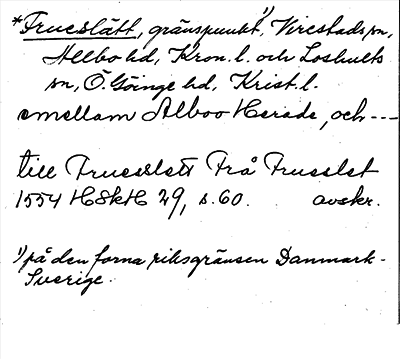 *Trueslätt, gränspunkt¹⁾, Virestads sn,
Allbo hd, Kron. l. och Loshults
sn, Ö. Göinge hd, Krist. l.
emellam Alboo Herade, och ---
till Trueslett Frå Trueslet
1554 HSkH 29, s. 60. avskr.
¹⁾ på den forna riksgränsen Danmark-
Sverige.